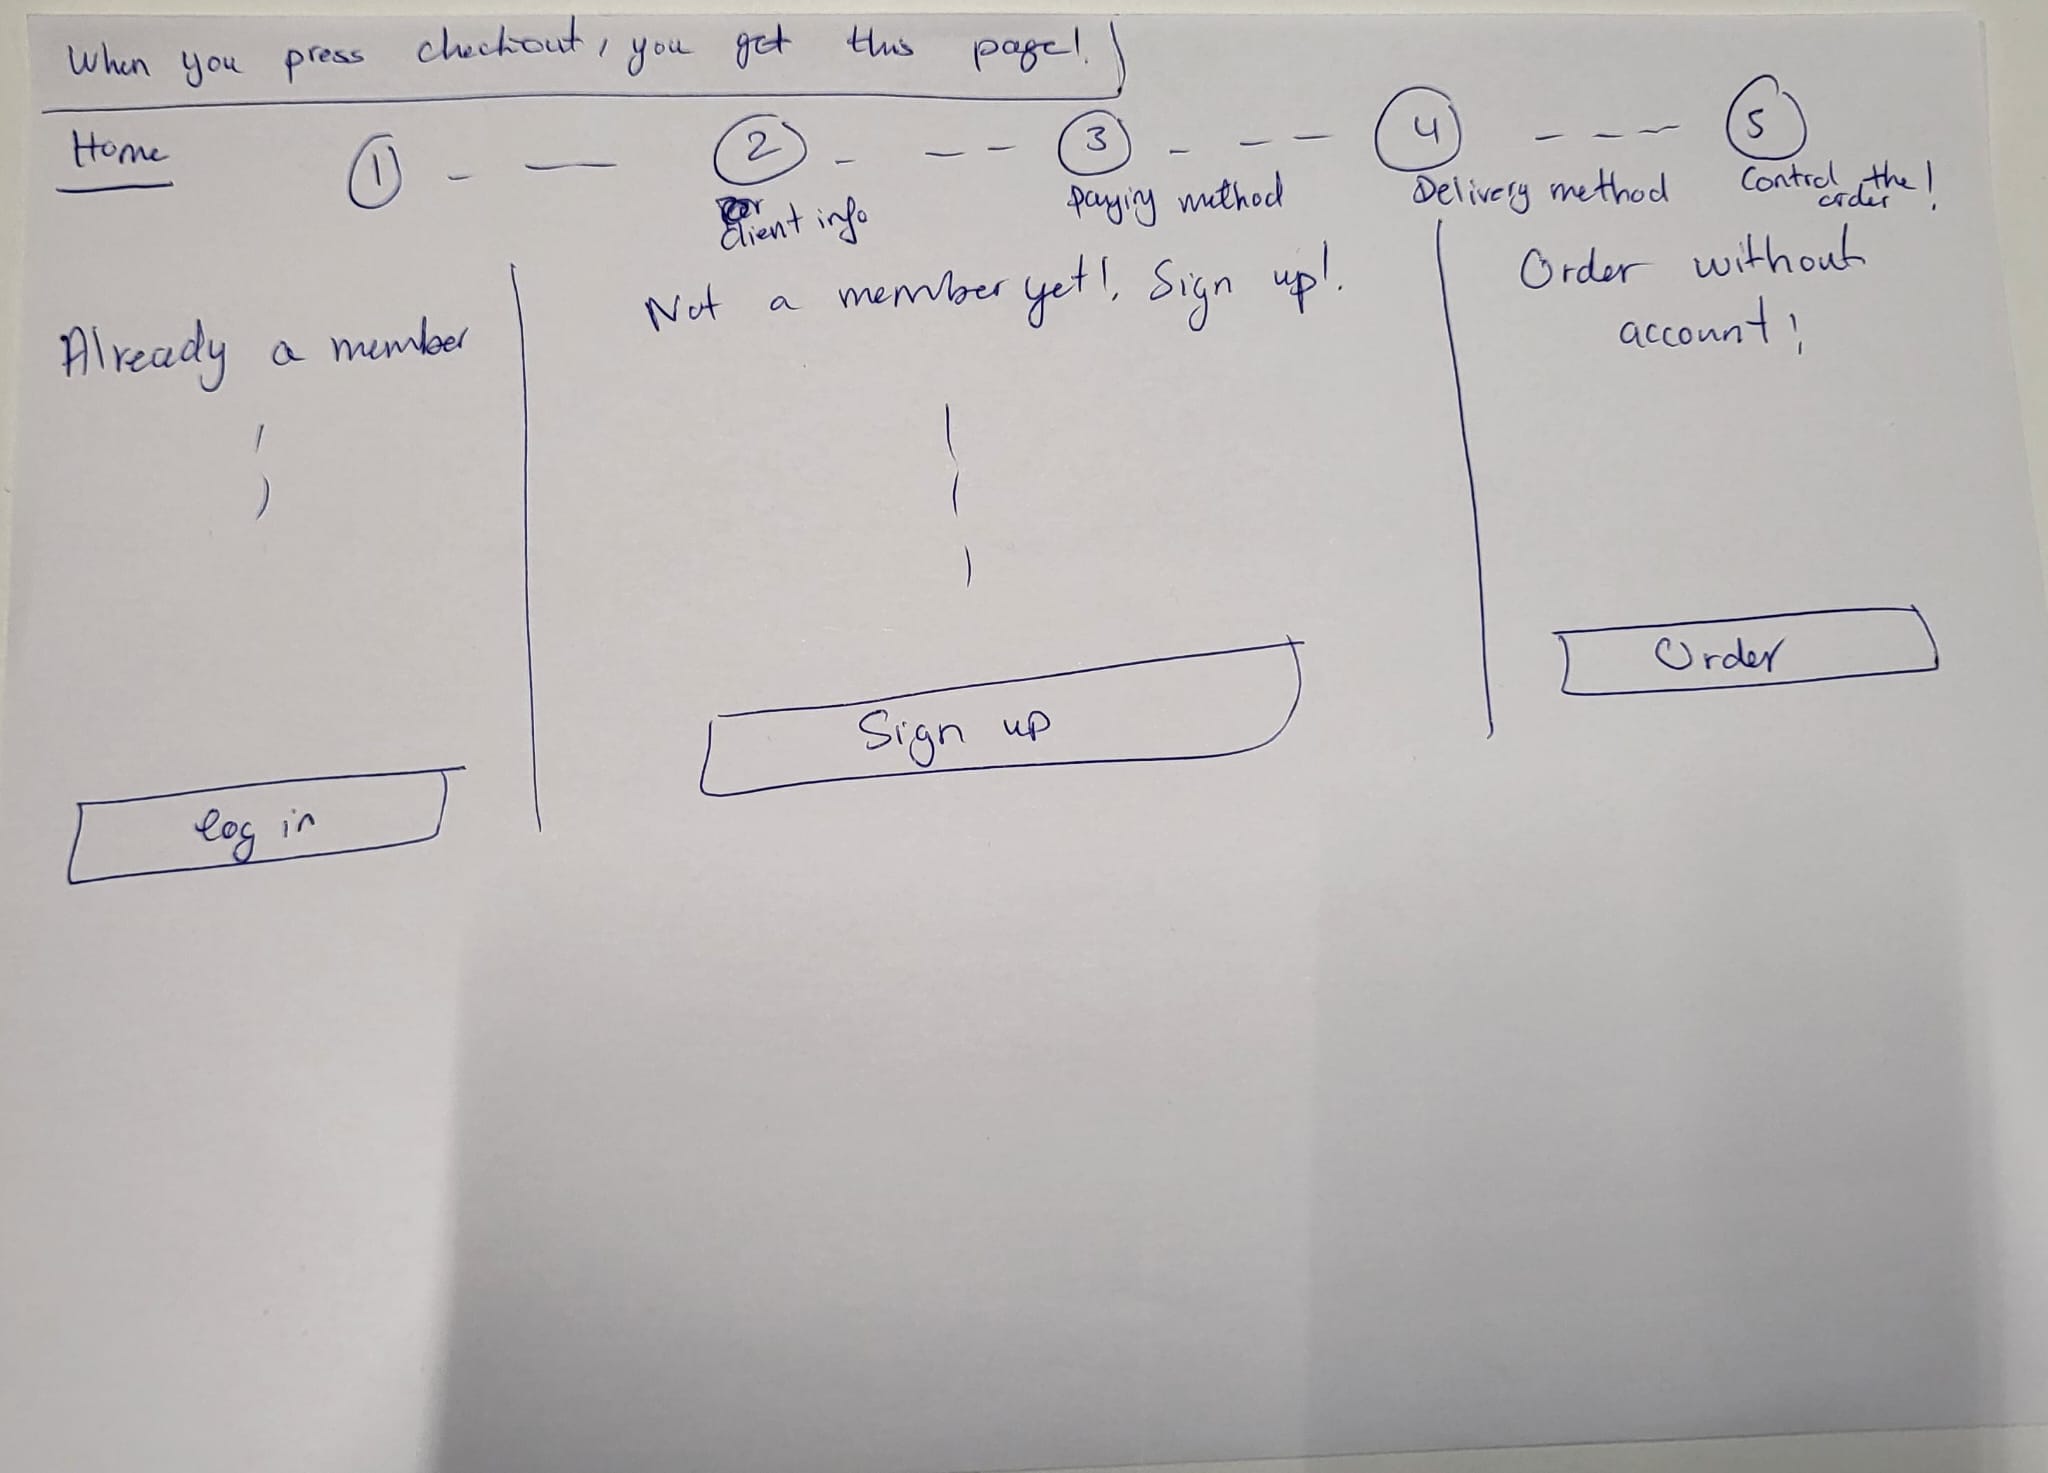 When you press checkout, you get this page!
Home
1 2 3 4 5
Client info
paying method
Delivery method
Control the order!
Already a member
Not a member yet!, Sign up!.
Order without
account!
Order
Sign up
log in